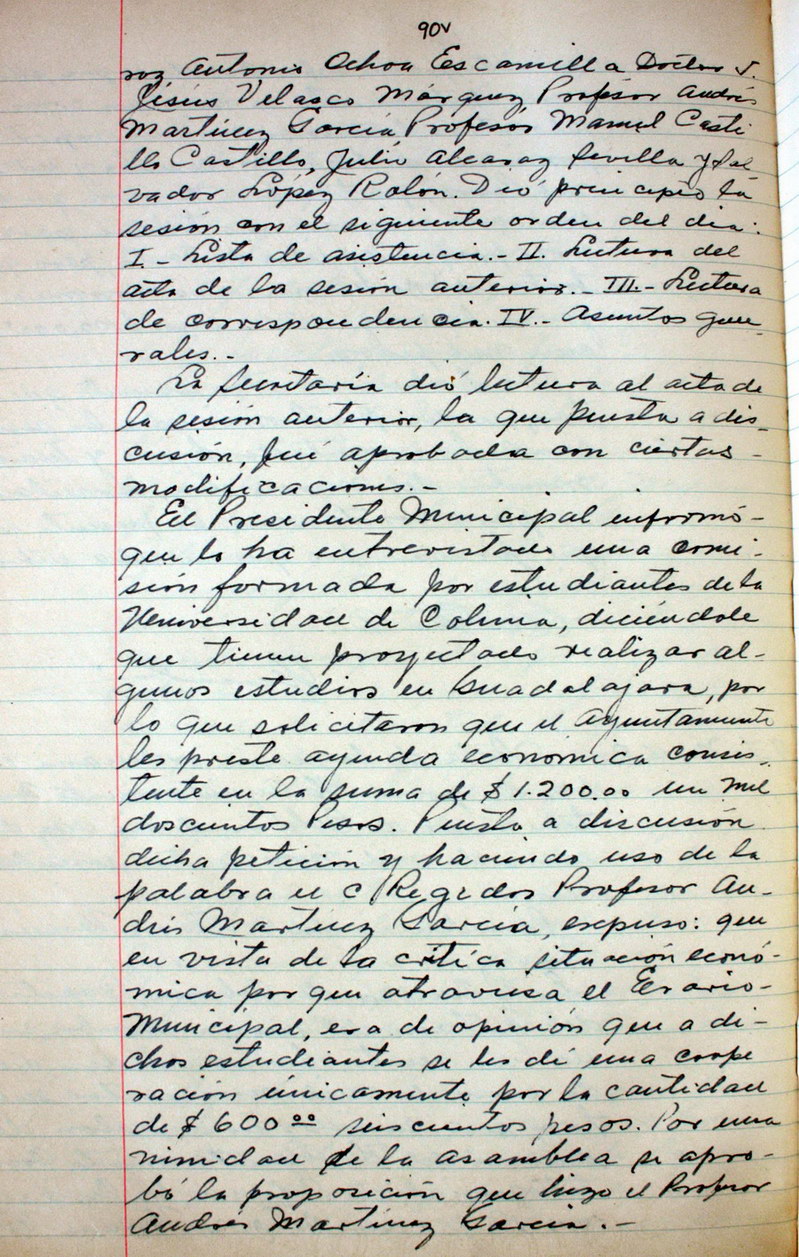 90v
roz Antonio Ochoa Escamilla Doctor J.
Jesús Velasco Márquez, Profesor Andrés
Martínez García Profesor Manuel Casti
llo Castillo, Julio Alcaraz Sevilla y Sal
vador López Rolón. Dió principio la
sesión con el siguiente orden del dia:
I - Lista de asistencia.- II. Lectura del
acta de la sesión anterior.- III.- Lectura
de correspondencia. IV.- Asuntos gene-
rales.-
La Secretaría dió lectura al acta de
la sesión anterior, la que puesta a dis-
cusión, fué aprobada con ciertas -
modificaciones.-
El Presidente Municipal informó -
que lo ha entrevistado una comi-
sión formada por estudiantes de la
Universidad de Colima, diciéndole
que tienen proyectado realizar al-
gunos estudios en Guadalajara, por
lo que solicitaron que el Ayuntamiento
les preste ayuda económica consis-
tente en la suma de $ 1.200.00 un mil
doscientos Pesos. Puesta a discusión
dicha petición y haciendo uso de la
palabra el C Regidor Profesor An-
drés Martínez García, expuso: que
en vista de la crítica situación econó-
mica por que atraviesa el Erario -
Municipal, era de opinión que a di-
chos estudiantes se les dé una coope
ración únicamente por la cantidad
de $ 600.00 seiscientos pesos. Por una
nimidad de la asamblea se apro-
bó la proposición que hizo el Profesor
Andrés Martínez García.-